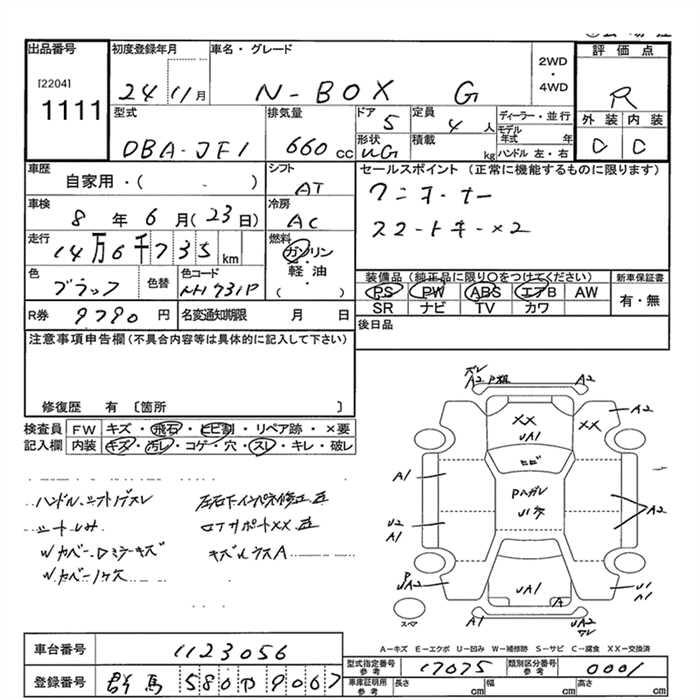 出品番号
[2204]
1111
初度登録年月
24 11月
車名・グレード
N-BOX G
2WD
・
4WD
評価点
R
外装 内装
D D
型式
DBA-JF1
排気量
660 cc
ドア
5
定員
4 人
形状
積載
kg
ディーラー・並行
モデル年式 年
ハンドル 左・右
車歴
自家用・( )
シフト
AT
セールスポイント (正常に機能するものに限ります)
ワンオーナー
スマートキー×2
車検
8 年 6 月 (23日)
冷房
AC
走行
14万6千735 km
燃料
ガソリン
軽油
( )
装備品(純正品に限り○をつけてください)
PS PW ABS エアB AW
SR ナビ TV カワ
新車保証書
有・無
色
ブラック
色替
色コード
NH731P
R券 9790 円
名変通知期限 月 日
後日品
注意事項申告欄(不具合内容等は具体的に記入して下さい)
修復歴 有 〔箇所 〕
検査員記入欄
FW キズ・飛石・ヒビ割・リペア跡・×要
内装 キズ・汚レ・コゲ・穴・スレ・キレ・破レ
ハンドル、シフトノブスレ
シートしみ
左右下インパネ修正
サポートXX
A2
A2
A2
XX
XX
UA1
ヒビ
A1
Pハガレ
A2
U2
A1
UA2
UA1
A
U1
A1
スマ
A1
UA2
A-キズ E-エクボ U-凹み W-補修跡 S-サビ C-腐食 XX-交換済
車台番号
1123056
登録番号
群馬 580 9067
型式指定番号
参考
17075
類別区分番号
参考
0001
車庫証明用
参考
長さ cm
幅 cm
高さ cm